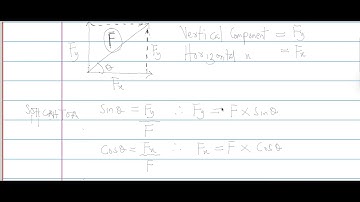 F
Fy
Fy
θ
Fx
Vertical Component = Fy
Horizontal " = Fx
Sinθ = Fy/F ∴ Fy = F × Sinθ
Cosθ = Fx/F ∴ Fx = F × Cosθ